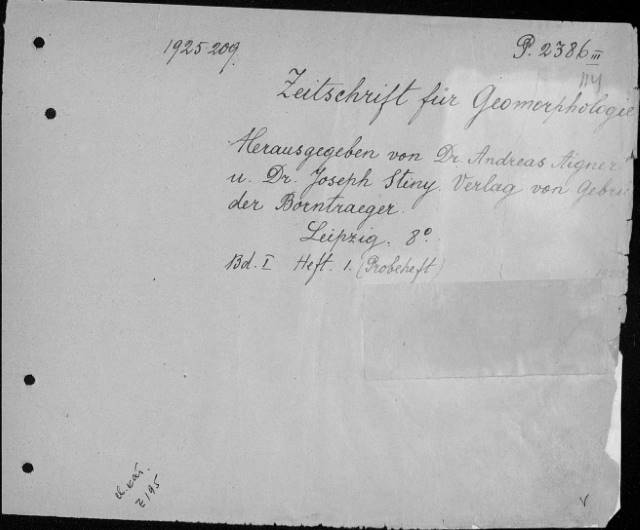 1925 209.
P. 2386 III
114
Zeitschrift für Geomorphologie
Herausgegeben von Dr. Andreas Aigner
u. Dr. Joseph Stiny. Verlag von Gebrü
der Borntraeger.
Leipzig. 8°.
Bd. I Heft. 1. (Probeheft)
1925
Z 195